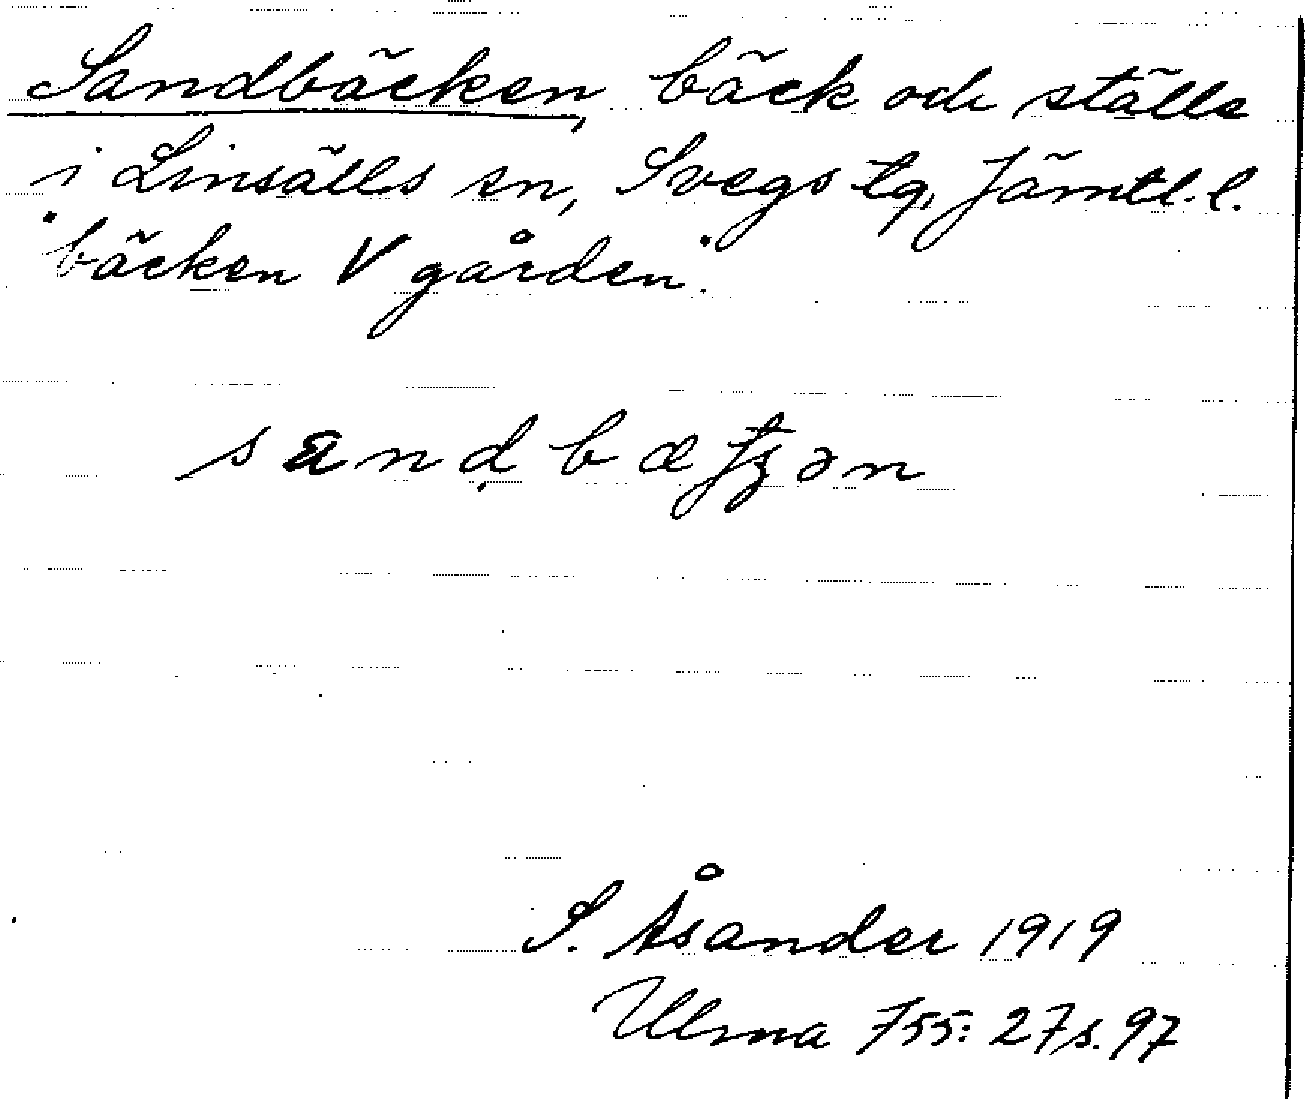 Sandbäcken, bäck och ställe
i Linsälls sn, Svegs tg, Jämtl. l.
"bäcken V gården".
S. Åsander 1919
Ulma 755: 27 s. 97